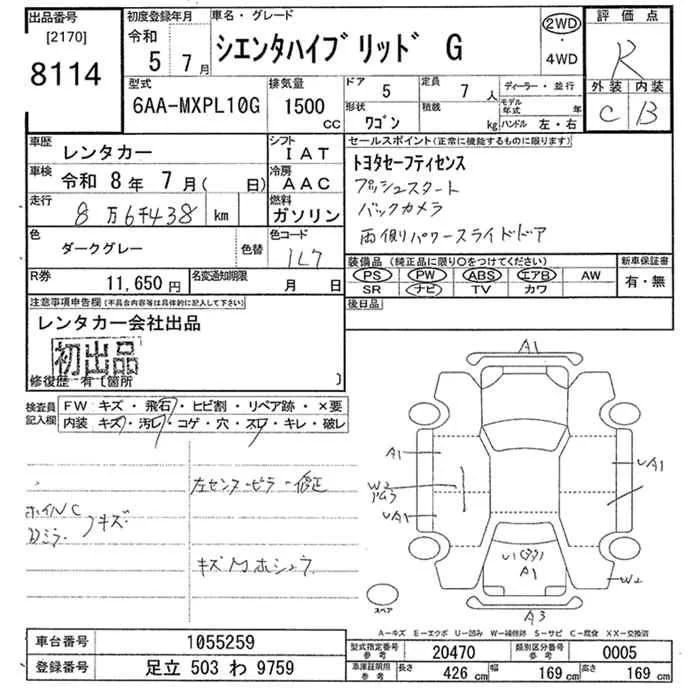 出品番号
[2170]
8114
初度登録年月
令和
5 7月
車名・グレード
シエンタハイブリッド G
2WD
・
4WD
評価点
R
外装 内装
C B
型式
6AA-MXPL10G
排気量
1500
CC
ドア
5
形状
ワゴン
定員
7 人
積載
kg
ディーラー・並行
モデル
年式 年
ハンドル 左・右
車歴
レンタカー
シフト
IAT
車検
令和 8 年 7 月( 日)
冷房
AAC
走行
8万6千438 km
燃料
ガソリン
色
ダークグレー
色替
色コード
1L7
R券
11,650 円
名変通知期限
月 日
セールスポイント(正常に機能するものに限ります)
トヨタセーフティセンス
プッシュスタート
バックカメラ
両側パワースライドドア
装備品 (純正品に限り○をつけてください)
PS PW ABS エアB AW
SR ナビ TV カワ
新車保証書
有・無
後日品
注意事項申告欄(不具合内容等は具体的に記入して下さい)
レンタカー会社出品
初出品
修復歴 有〔箇所 〕
検査員
記入欄
FW キズ・飛石・ヒビ割・リペア跡・×要
内装 キズ・汚レ・コゲ・穴・スレ・キレ・破レ
左センターピラー修正
ホイルC
Dミラー
キズ
キズMホシュラ
A1
A1
W2
UA1
UA1
A1
W2
A3
スペア
A-キズ E-エクボ U-凹み W-補修跡 S-サビ C-腐食 XX-交換済
車台番号
1055259
登録番号
足立 503 わ 9759
型式指定番号
参考
20470
類別区分番号
参考
0005
車庫証明用
参考
長さ
426 cm
幅
169 cm
高さ
169 cm